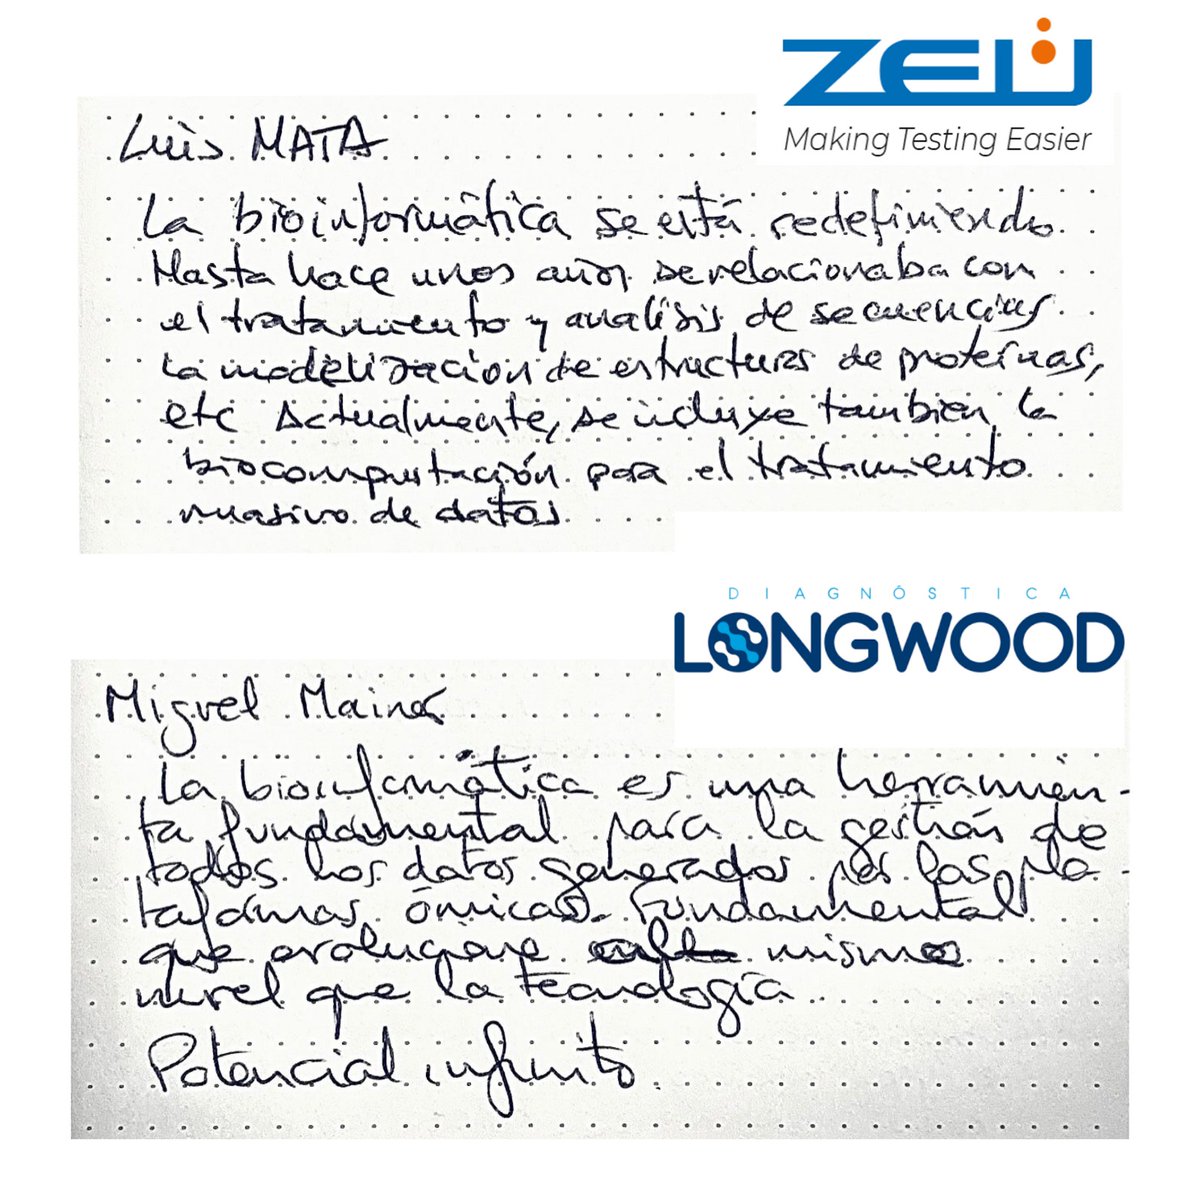 ZEU
Making Testing Easier
Luis MATA
La bioinformática se está redefiniendo.
Hasta hace unos años se relacionaba con
el tratamiento y análisis de secuencias
la modelización de estructuras de proteínas,
etc Actualmente, se incluye también la
biocomputación para el tratamiento
masivo de datos
DIAGNÓSTICA
LONGWOOD
Miguel Mainar
La bioinformática es una herramien-
ta fundamental para la gestión de
todos los datos generados por las pla-
taformas ómicas. Fundamental
que evolucione mismo
nivel que la tecnología
Potencial infinito.